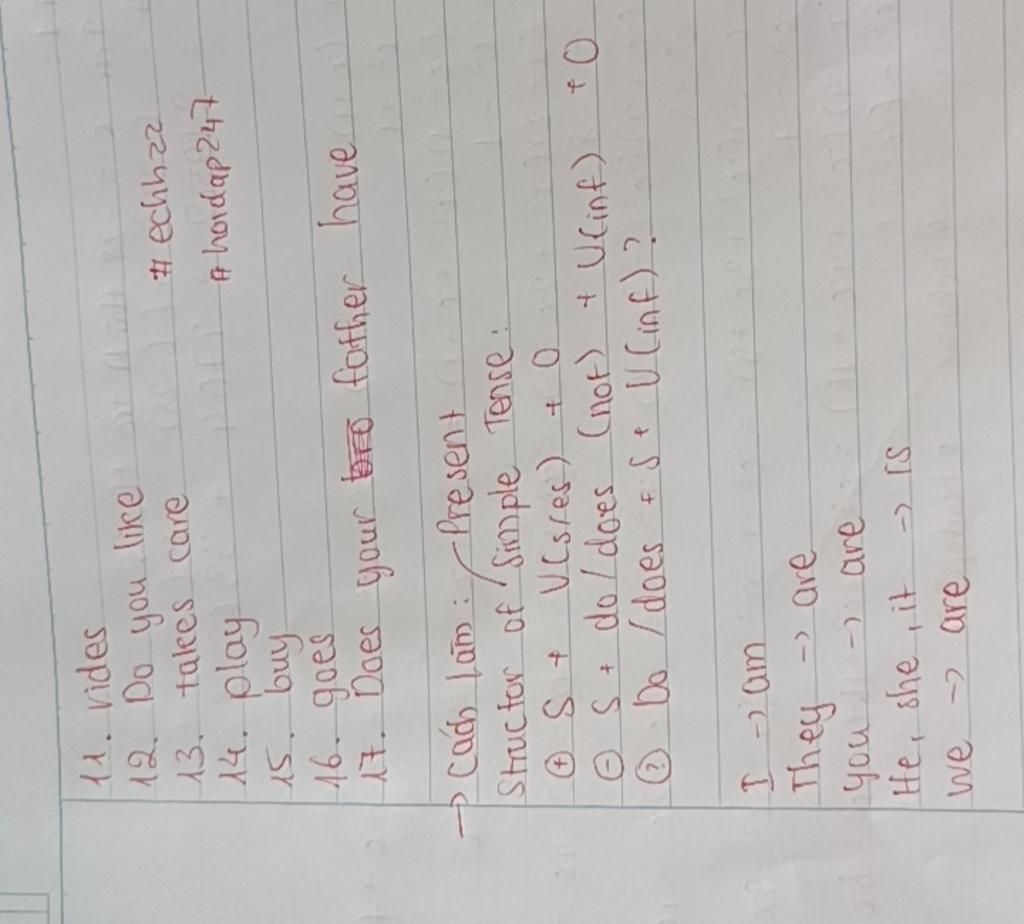 11. rides
12. Do you like
#echhzz
13. takes care
#hoidap247
14. play
15. buy
16. goes
17. Does your father have
→ Cách làm:
Structor of Present Simple Tense:
+ S + V(s/es) + O
- S + do/does (not) + V(inf) + O
? Do/does + S + V(inf)?
I → am
They → are
you → are
He, she, it → is
we → are